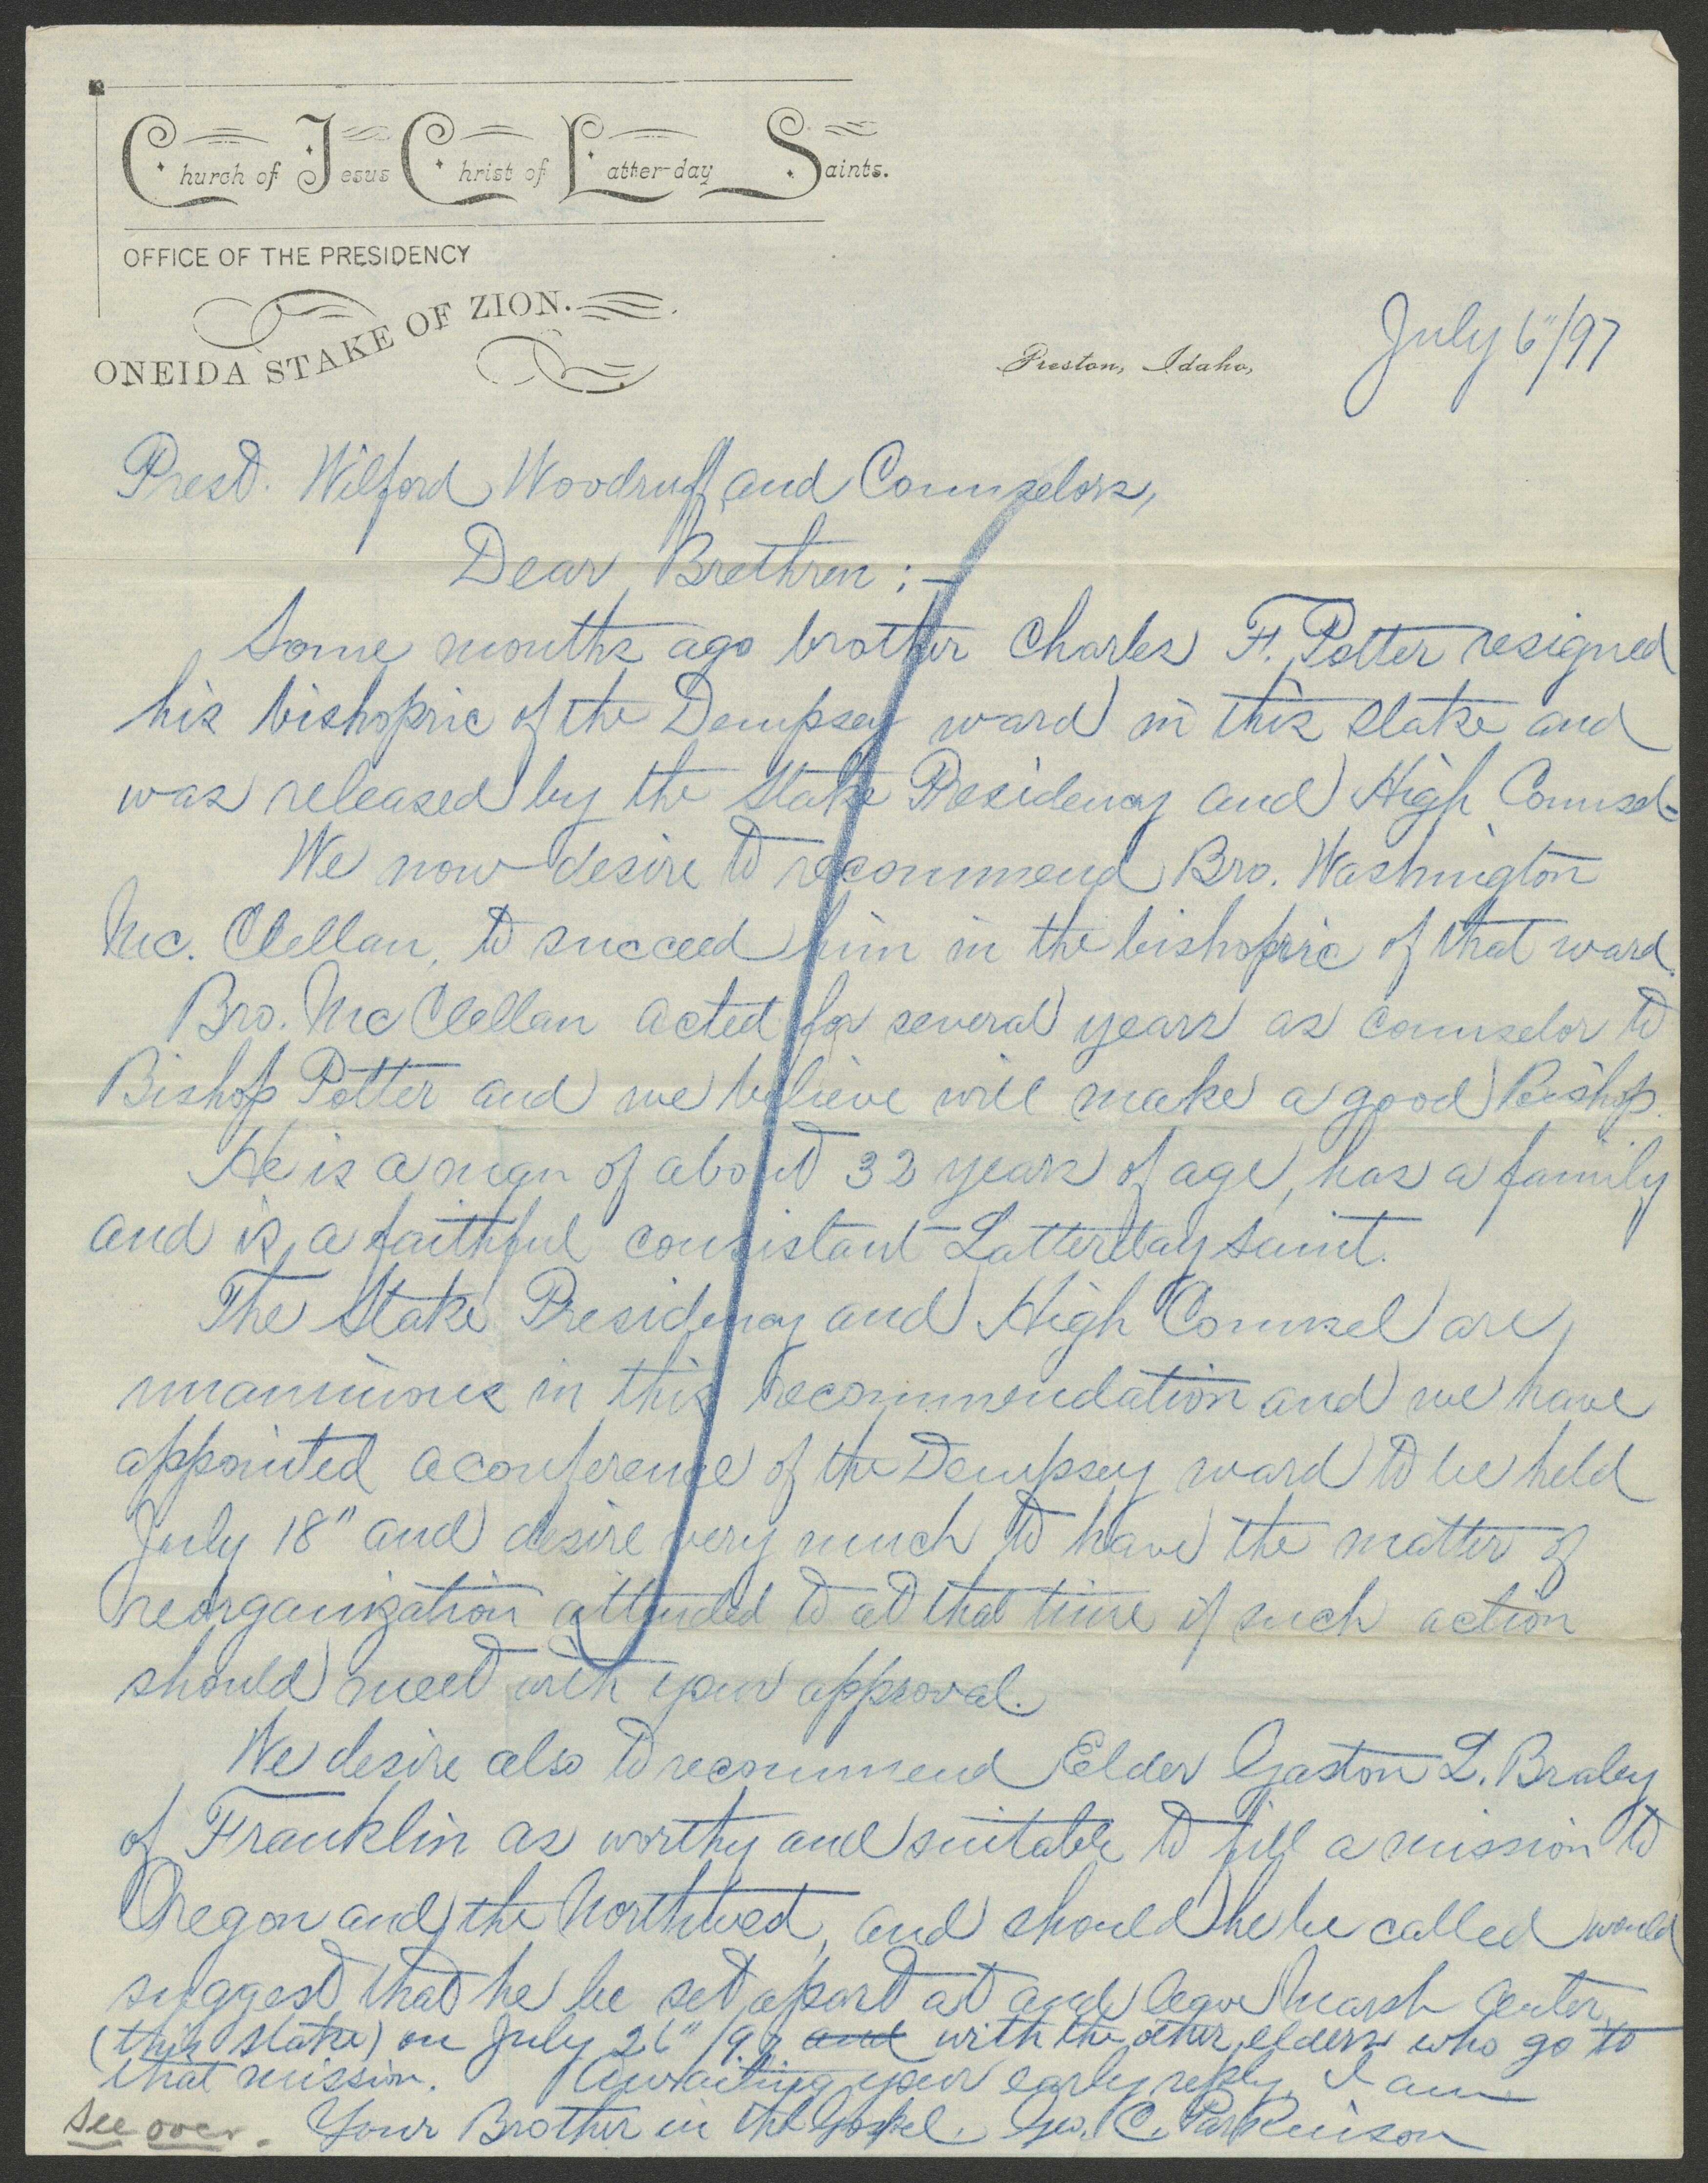 Church of Jesus Christ of Latter-day Saints.
OFFICE OF THE PRESIDENCY
ONEIDA STAKE OF ZION.
Preston, Idaho, July 6"/97
Prest. Wilford Woodruff and Counselors,
Dear Brethren :-
Some months ago brother Charles F. Potter resigned
his bishopric of the Dempsey ward in this stake and
was released by the Stake Presidency and High Counsel-
We now desire to recommend Bro. Washington
Mc. Clellan, to succeed him in the bishopric of that ward.
Bro. McClellan acted for several years as counselor to
Bishop Potter and we believe will make a good Bishop.
He is a man of about 32 years of age, has a family
and is a faithful consistant Latterday saint.
The Stake Presidency and High Counsel are
unanimous in this recommendation and we have
appointed a conference of the Dempsey ward to be held
July 18" and desire very much to have the matter of
reorganization attended to at that time if such action
should meet with your approval.
We desire also to recommend Elder Gaston L. Braley
of Franklin as worthy and suitable to fill a mission to
Oregon and the Northwest, and should he be called would
suggest that he be set apart at and leave Marsh Center,
(this stake) on July 26"/97 and with the other elders who go to
that mission. Awaiting your early reply, I am
Your Brother in the Gospel, Geo. C. Parkinson
See over.